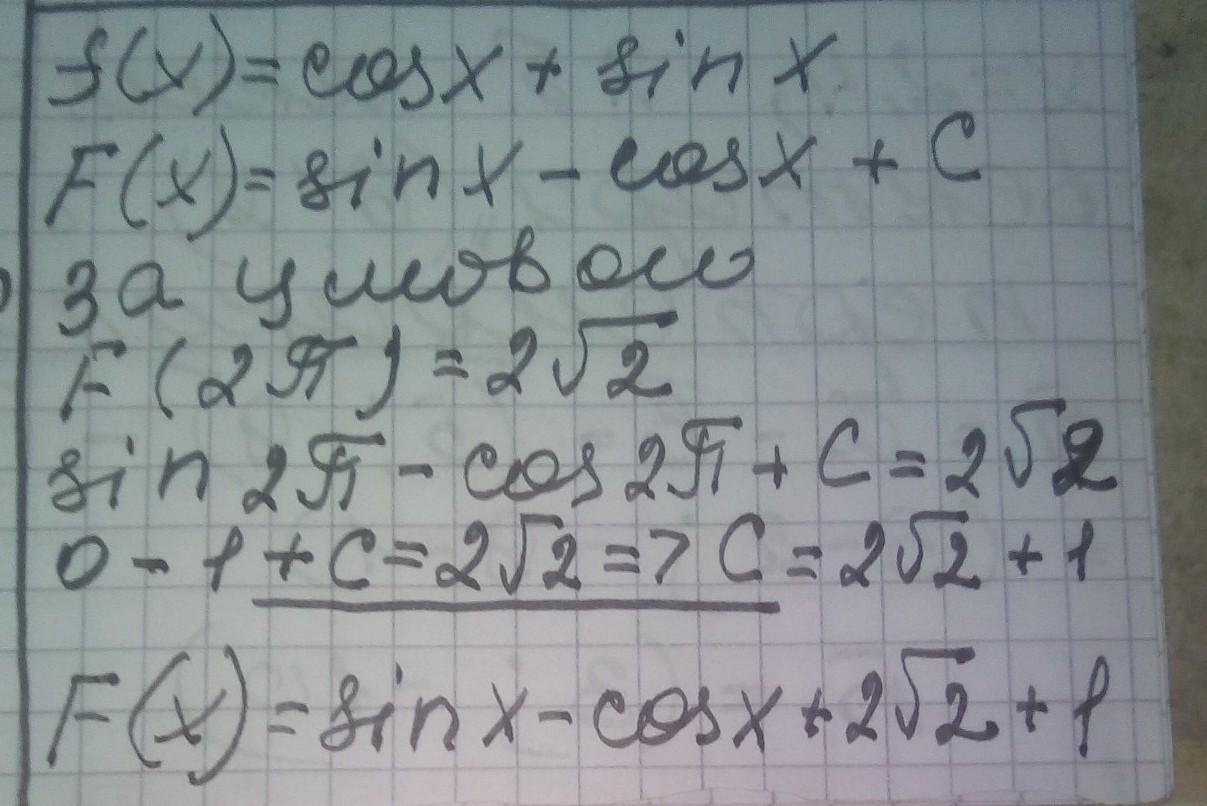 f(x)=cosx+sinx
F(x)=sinx-cosx+C
За умовою
F(2π)=2√2
sin2π-cos2π+C=2√2
0-1+C=2√2=>C=2√2+1
F(x)=sinx-cosx+2√2+1